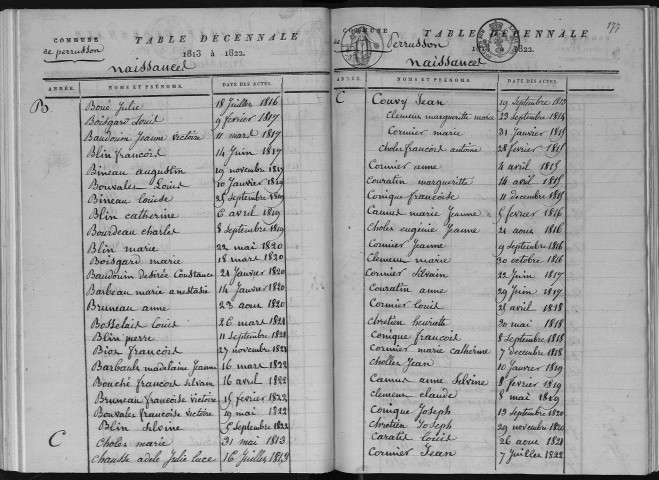 COMMUNE
de perrusson
TABLE DÉCENNALE
1813 à 1822.
naissances
ANNÉE. NOMS ET PRÉNOMS. DATE DES ACTES.
B. Boué Julie 18 Juillet 1816
Boisgard Louis 9 février 1817
Baudouin Jeanne victoire 11 mars 1817
Blin francois 14 Juin 1817
Bineau augustin 19 novembre 1817
Bonvalet Louis 10 Janvier 1819
Bineau louise 25 Septembre 1819
Blin catherine 6 avril 1819
Bourdeau charles 8 septembre 1819
Blin marie 22 mai 1820
Boisgard marie 18 mars 1820
Baudouin desirée Constance 21 Janvier 1820
Barbeau marie anestasie 14 Janvier 1820
Bruneau anne 23 aout 1820
Bosselait louis 26 mars 1821
Blin pierre 11 septembre 1821
Biot francois 27 novembre 1821
Barbault madelaine Jeanne 16 mars 1822
Bouché francois silvain 16 avril 1822
Bruneau francoise victoire 15 février 1822
Bonvalet francoise victoire 19 mai 1822
Blin silvine 5 septembre 1822
C Cholet marie 31 mai 1813
Chausse adele Julie luce 16 Juillet 1813
177
COMMUNE
de Perrusson
TABLE DÉCENNALE
1822.
naissances
ANNÉE. NOMS ET PRÉNOMS. DATE DES ACTES.
C Couvy Jean 19 Septembre 1813
Clemeur marguerritte marie 23 septembre 1814
Cormier marie 31 Janvier 1815
cholet francois antoine 28 février 1815
Cormier anne 4 avril 1815
Couratin margueritte 14 avril 1815
Conique francoise 11 decembre 1815
Camus marie Jeanne 5 fevrier 1816
Cholet eugénie Jeanne 24 aout 1816
Cormier Jeanne 9 septembre 1816
Clemeur marie 30 octobre 1816
Cormier Silvain 22 Juin 1817
Couratin anne 29 Juin 1817
Cormier Louis 21 avril 1818
chretien heuriette 30 mai 1818
Conique francois 8 Septembre 1818
Cormier marie catherine 7 decembre 1818
chollet Jean 10 Janvier 1819
Camus anne Silvine 8 février 1819
clemeur claude 8 mai 1819
Conique Joseph 13 Septembre 1820
Chretien Joseph 29 novembre 1820
Caratis louis 26 aout 1821
Cormier Jean 7 Juillet 1822